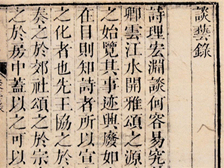 談藝錄
詩理宏淵談何容易究
卿雲江水開雅頌之源
之始覽其事迹興廢如
在目則知詩者所以宣
之化者也先王協之於
奏之於郊社頌之於宗
之於房中蓋以之可以